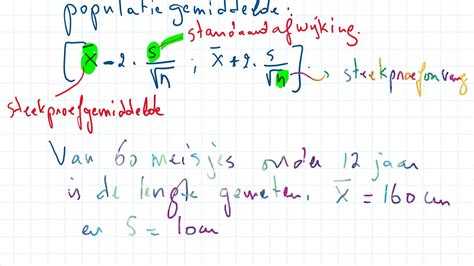 populatiegemiddelde:
standaardafwijking.
[x̄ - 2 · s/√n ; x̄ + 2 · s/√n]
steekproefomvang
steekproefgemiddelde
Van 60 meisjes onder 12 jaar
is de lengte gemeten. x̄ = 160 cm
en S = 10cm